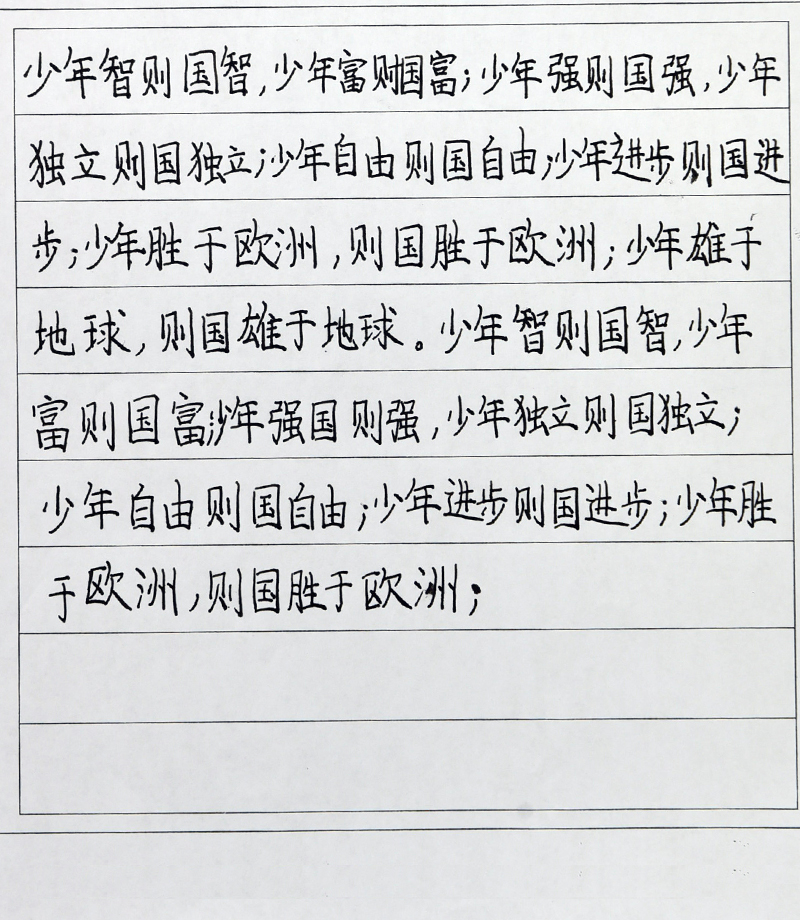 少年智则国智,少年富则国富;少年强则国强,少年
独立则国独立;少年自由则国自由;少年进步则国进
步;少年胜于欧洲,则国胜于欧洲;少年雄于
地球,则国雄于地球。少年智则国智,少年
富则国富;少年强国则强,少年独立则国独立;
少年自由则国自由;少年进步则国进步;少年胜
于欧洲,则国胜于欧洲;